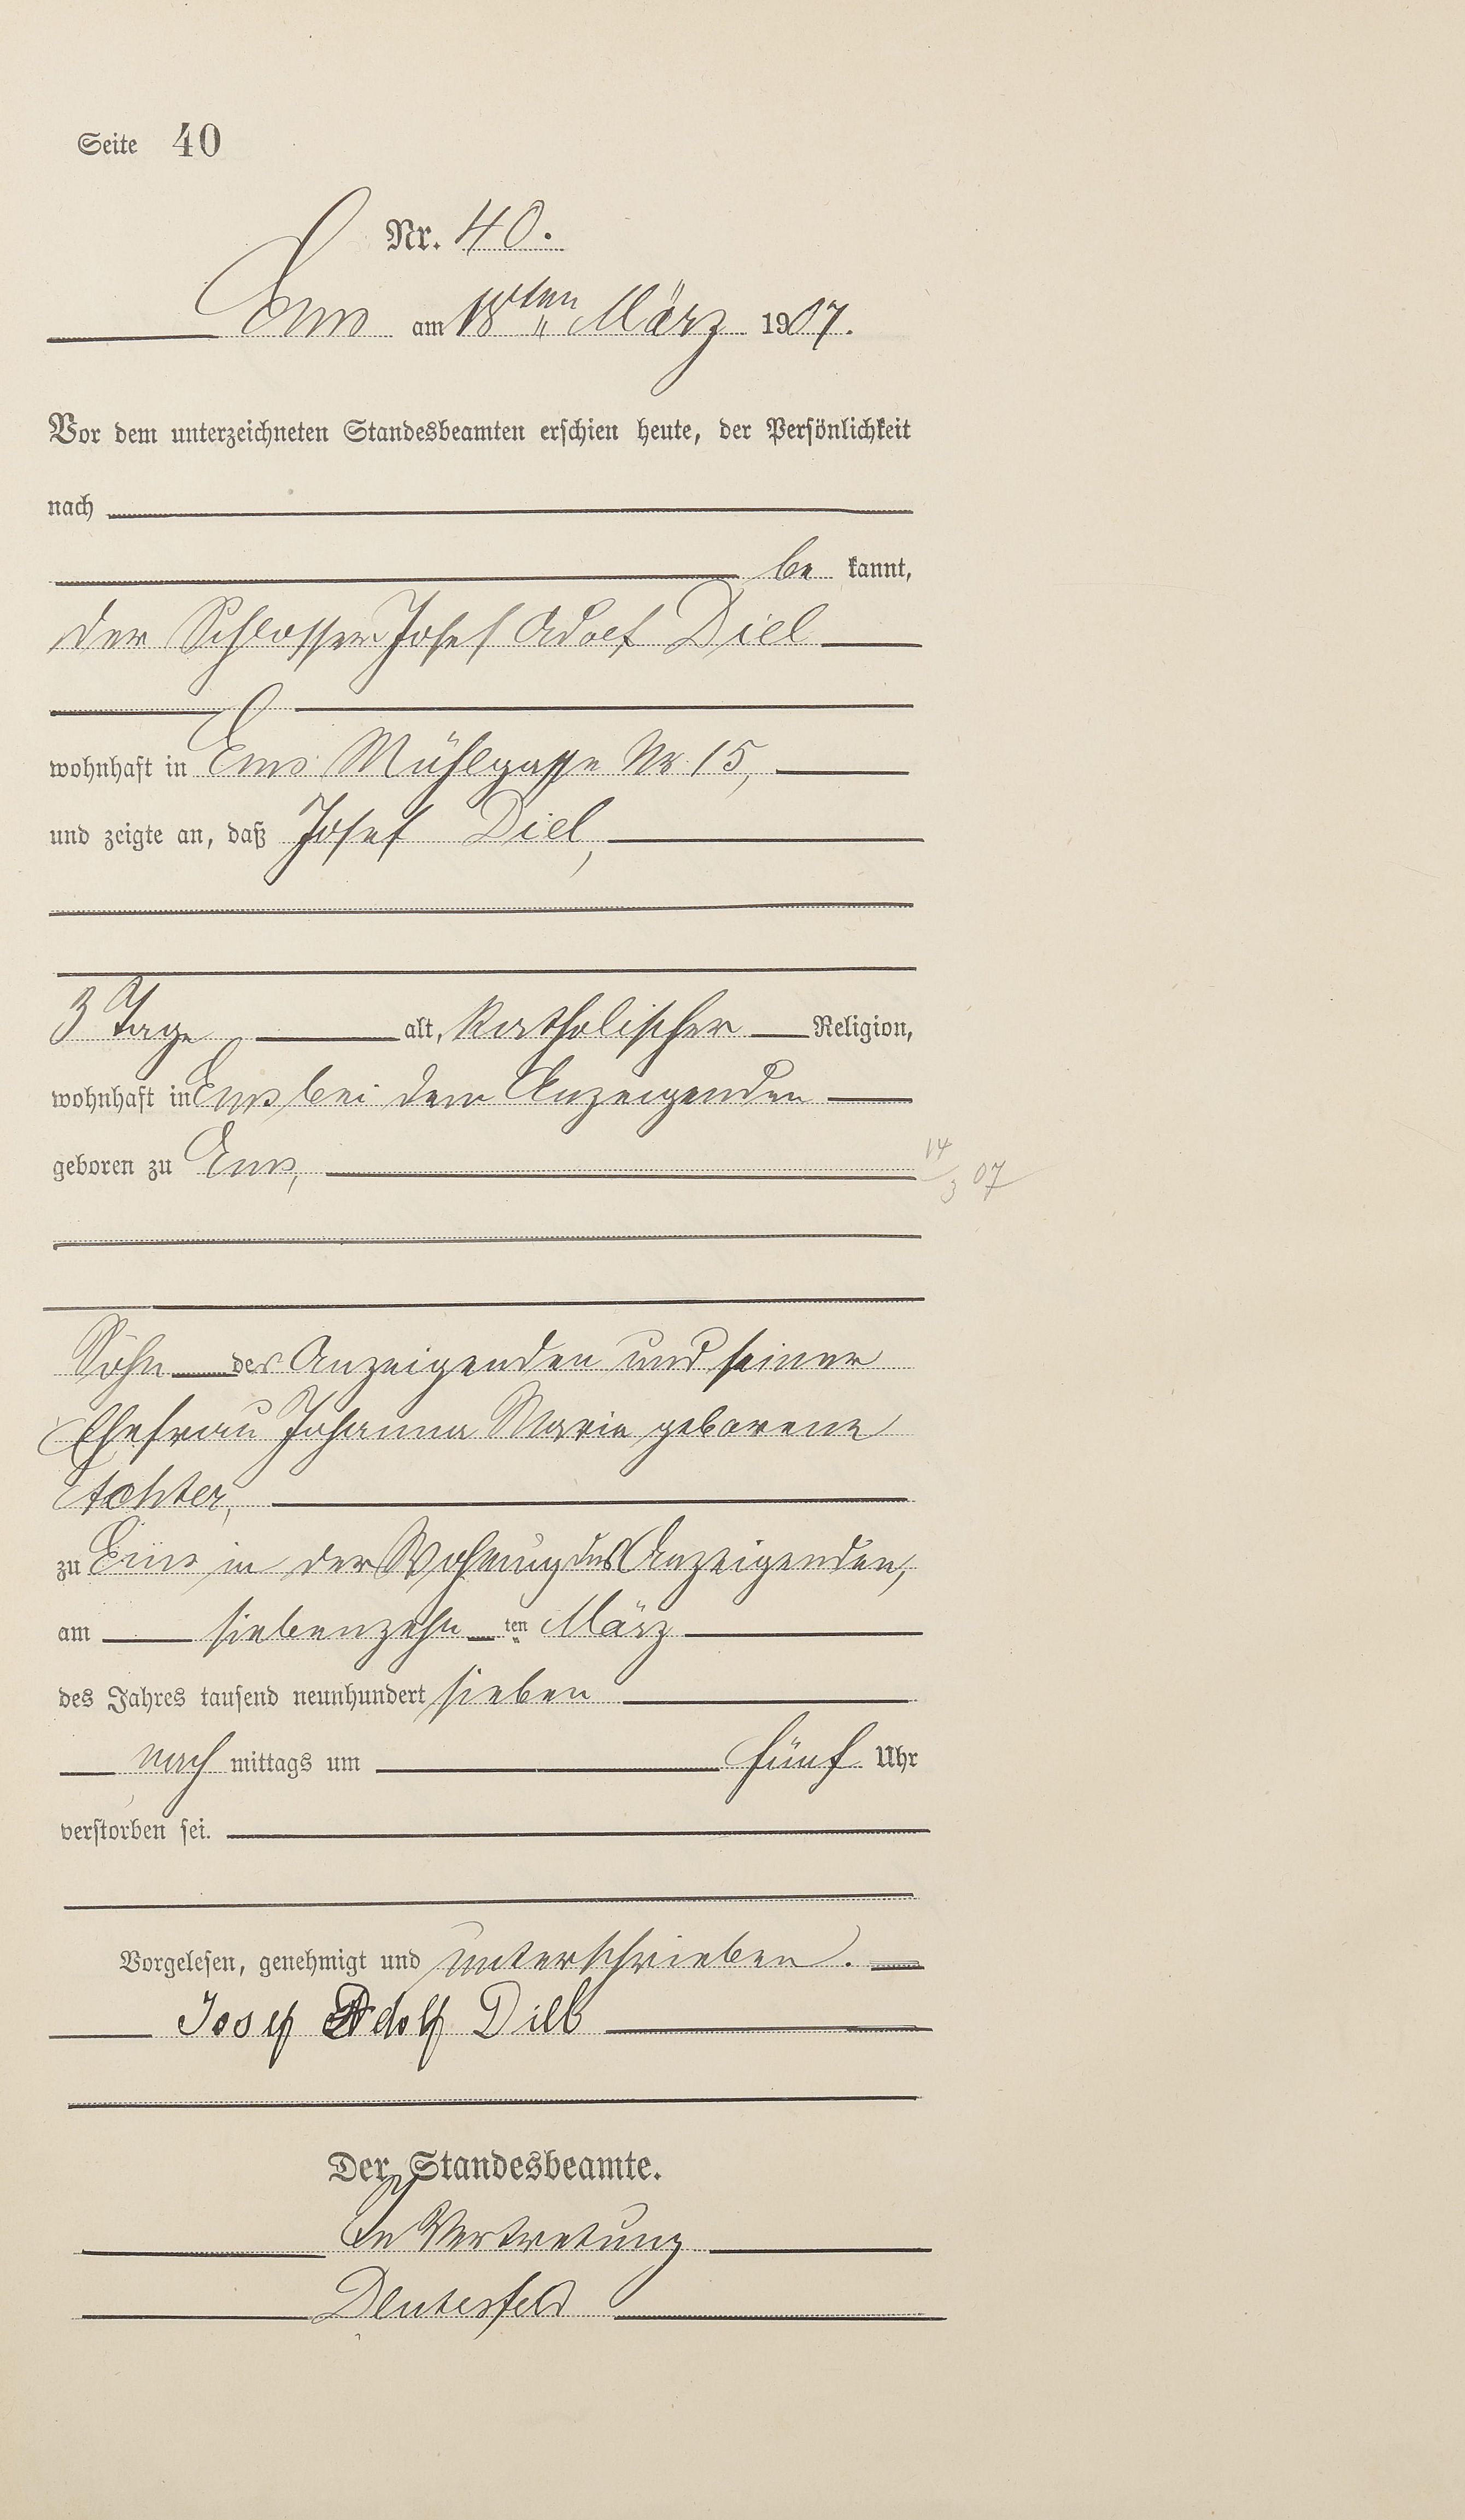 Seite 40
Nr. 40.
Ems am 18ten März 1907.
Vor dem unterzeichneten Standesbeamten erschien heute, der Persönlichkeit
nach
be kannt,
der Schlosser Josef Adolf Diel
wohnhaft in Ems Mühlgasse Nr. 15,
und zeigte an, daß Josef Diel,
3 Tage alt, katholischer Religion,
wohnhaft in Ems bei dem Anzeigenden
geboren zu Ems,
14/3 07
Sohn des Anzeigenden und seiner
Ehefrau Johanna Maria geborene
zu Ems in der Wohnung des Anzeigenden,
am siebenzehn ten März
des Jahres tausend neunhundert sieben
nach mittags um fünf Uhr
verstorben sei.
Vorgelesen, genehmigt und unterschrieben.
Josef Adolf Diel
Der Standesbeamte.
In Vertretung